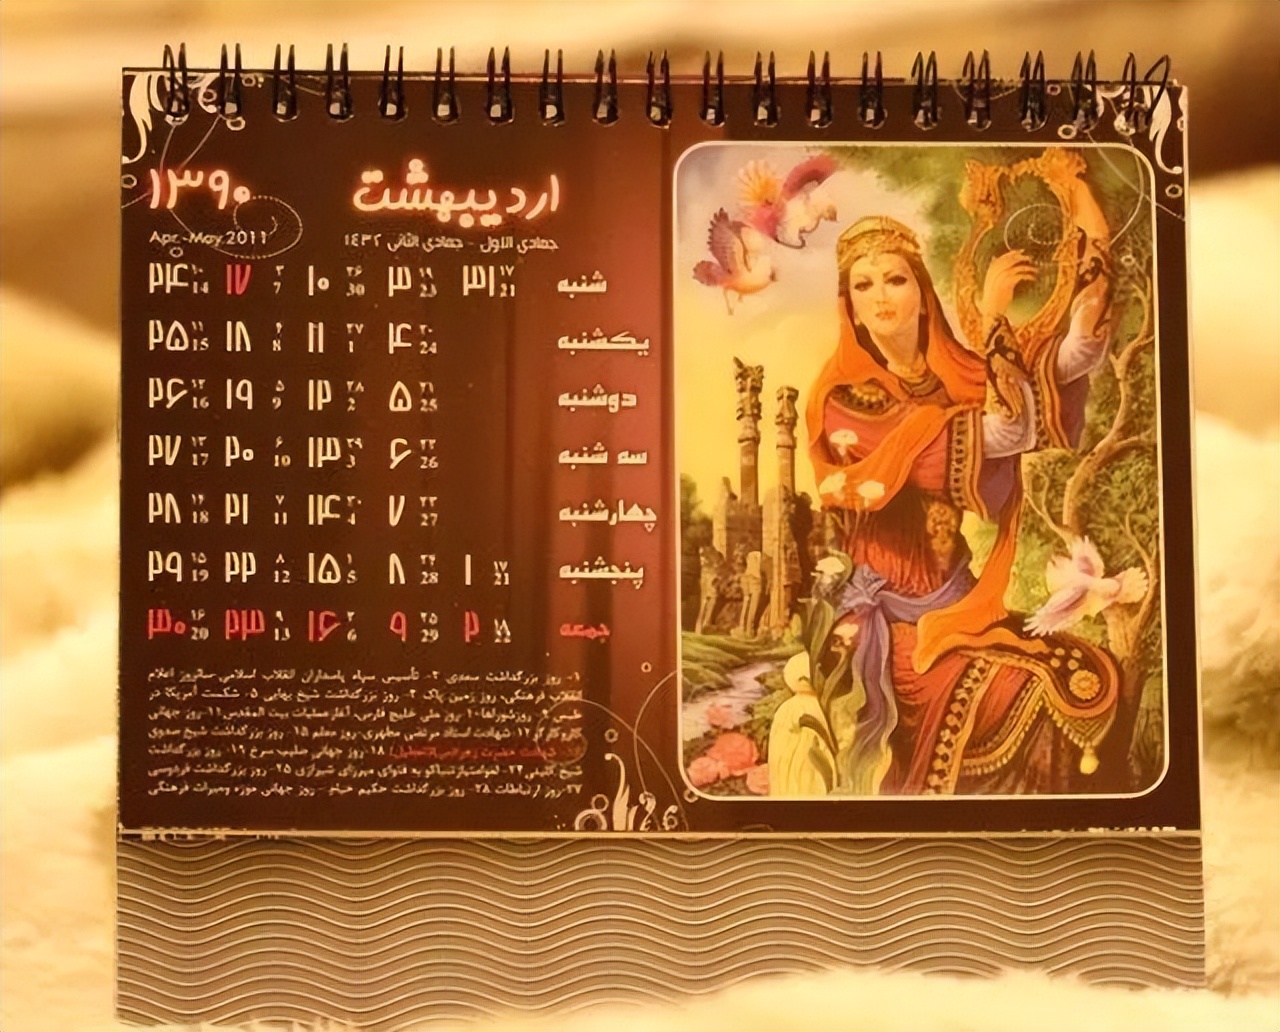 اردیبهشت ۱۳۹۰
جمادی الاول - جمادی الثانی ۱۴۳۲ Apr.-May.2011
شنبه ۳۱ ۱۷ 21 ۳ ۱۹ 23 ۱۰ ۲۶ 30 ۱۷ ۳ 7 ۲۴ ۱۰ 14
یکشنبه ۴ ۲۰ 24 ۱۱ ۲۷ 1 ۱۸ ۴ 8 ۲۵ ۱۱ 15
دوشنبه ۵ ۲۱ 25 ۱۲ ۲۸ 2 ۱۹ ۵ 9 ۲۶ ۱۲ 16
سه شنبه ۶ ۲۲ 26 ۱۳ ۲۹ 3 ۲۰ ۶ 10 ۲۷ ۱۳ 17
چهارشنبه ۷ ۲۳ 27 ۱۴ ۳۰ 4 ۲۱ ۷ 11 ۲۸ ۱۴ 18
پنجشنبه ۱ ۱۷ 21 ۸ ۲۴ 28 ۱۵ ۱ 5 ۲۲ ۸ 12 ۲۹ ۱۵ 19
جمعه ۲ ۱۸ 22 ۹ ۲۵ 29 ۱۶ ۲ 6 ۲۳ ۹ 13 ۳۰ ۱۶ 20
۱- روز بزرگداشت سعدی ۲- تأسیس سپاه پاسداران انقلاب اسلامی سالروز اعلام
انقلاب فرهنگی، روز زمین پاک ۳- روز بزرگداشت شیخ بهایی ۵- شکست آمریکا در
طبس ۹- روز شوراها ۱۰- روز ملی خلیج فارس، آغاز عملیات بیت المقدس ۱۱- روز جهانی
کار و کارگر ۱۲- شهادت استاد مرتضی مطهری- روز معلم ۱۵- روز بزرگداشت شیخ صدوق
شهادت حضرت زهرا ۱۸- روز جهانی صلیب سرخ ۱۹- روز بزرگداشت
شیخ کلینی ۲۴- لغو امتیاز تنباکو به فتوای میرزای شیرازی ۲۵- روز بزرگداشت فردوسی
۲۷- روز ارتباطات ۲۸- روز بزرگداشت حکیم خیام - روز جهانی موزه و میراث فرهنگی